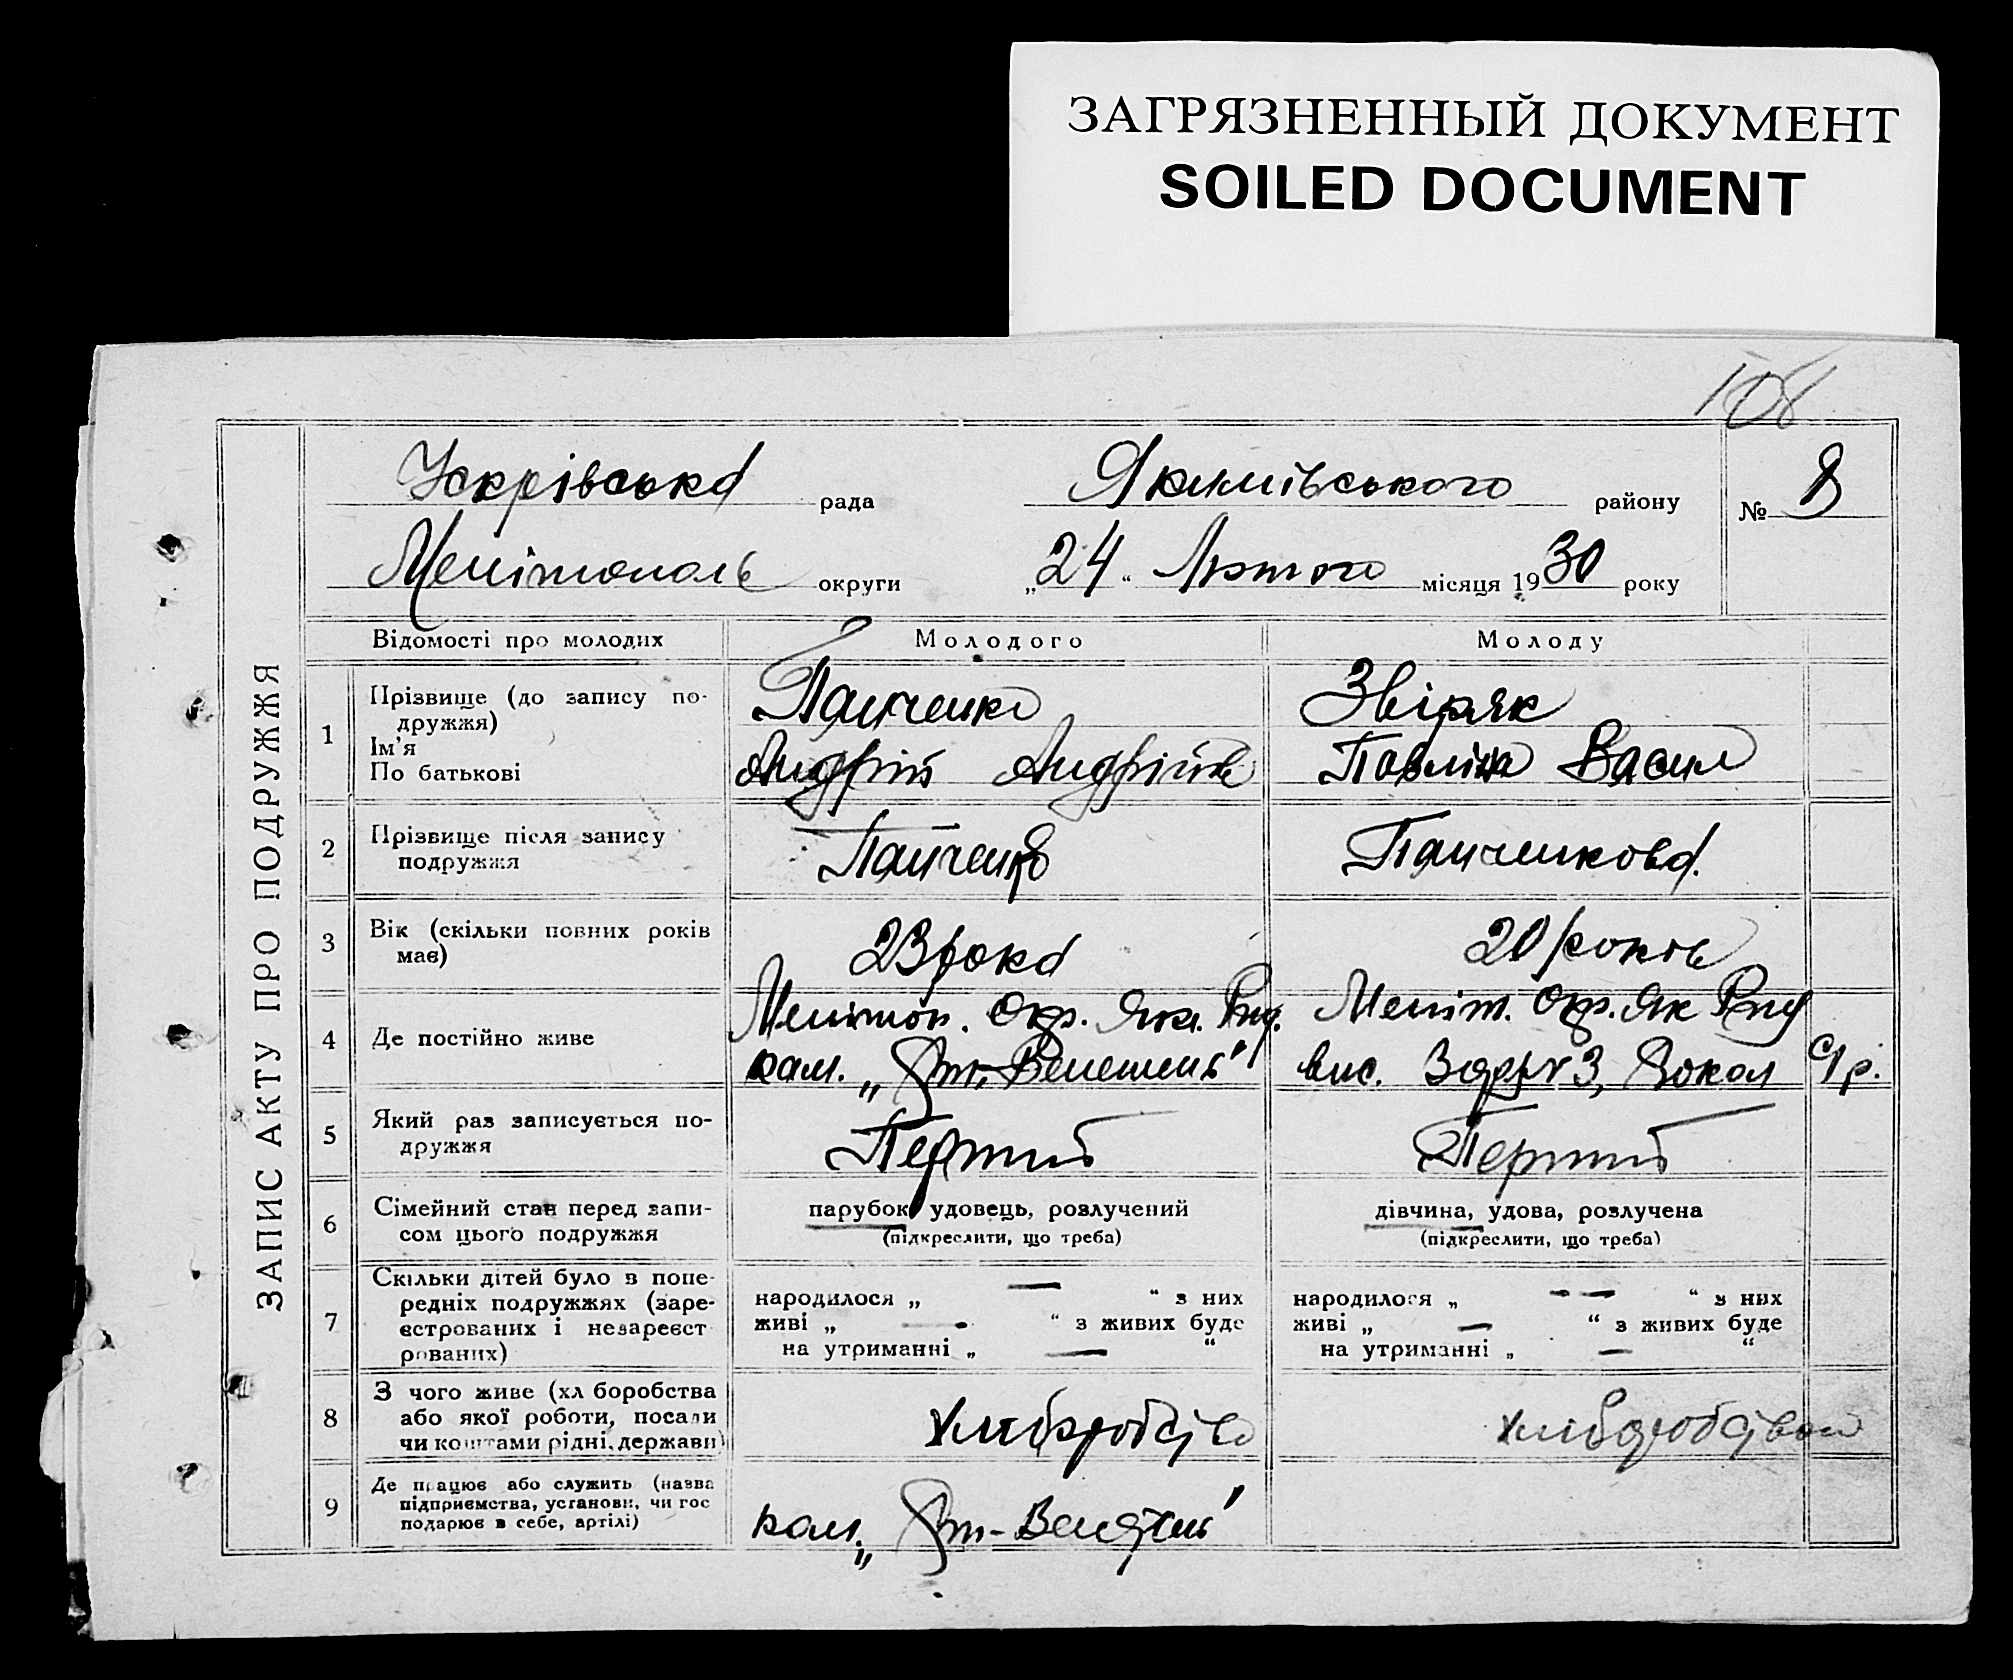 ЗАГРЯЗНЕННЫЙ ДОКУМЕНТ
SOILED DOCUMENT
108
ЗАПИС АКТУ ПРО ПОДРУЖЖЯ
рада Якимівського району № 8
Мелітополь округи „24“ Лютого місяця 1930 року
Відомості про молодих Молодого Молоду
1 Прізвище (до запису по-
дружжя)
Ім'я
По батькові
Панченко
Андрій Андрійов
Звіряк
Павліна Васил
2 Прізвище після запису
подружжя
Панченко
Панченкова
3 Вік (скільки повних років
має)
23 рока
20 років
4 Де постійно живе
Мелітоп. Окр. Як. Рид.
Меліт. Окр. Як Рид
вис. с/р.
5 Який раз записується по-
дружжя
Перший
Перший
6 Сімейний стан перед запи-
сом цього подружжя
парубок, удовець, розлучений
(підкреслити, що треба)
дівчина, удова, розлучена
(підкреслити, що треба)
7 Скільки дітей було в попе-
редніх подружжях (заре-
єстрованих і незареєст-
рованих)
народилося „ — “ з них
живі „ — “ з живих буде
на утриманні „ — “
народилося „ — — “ з них
живі „ — “ з живих буде
на утриманні „ — “
8 З чого живе (хл боробства
або якої роботи, посади
чи коштами рідні, держави)
9 Де працює або служить (назва
підприємства, установи, чи гос
подарює в себе, артілі)